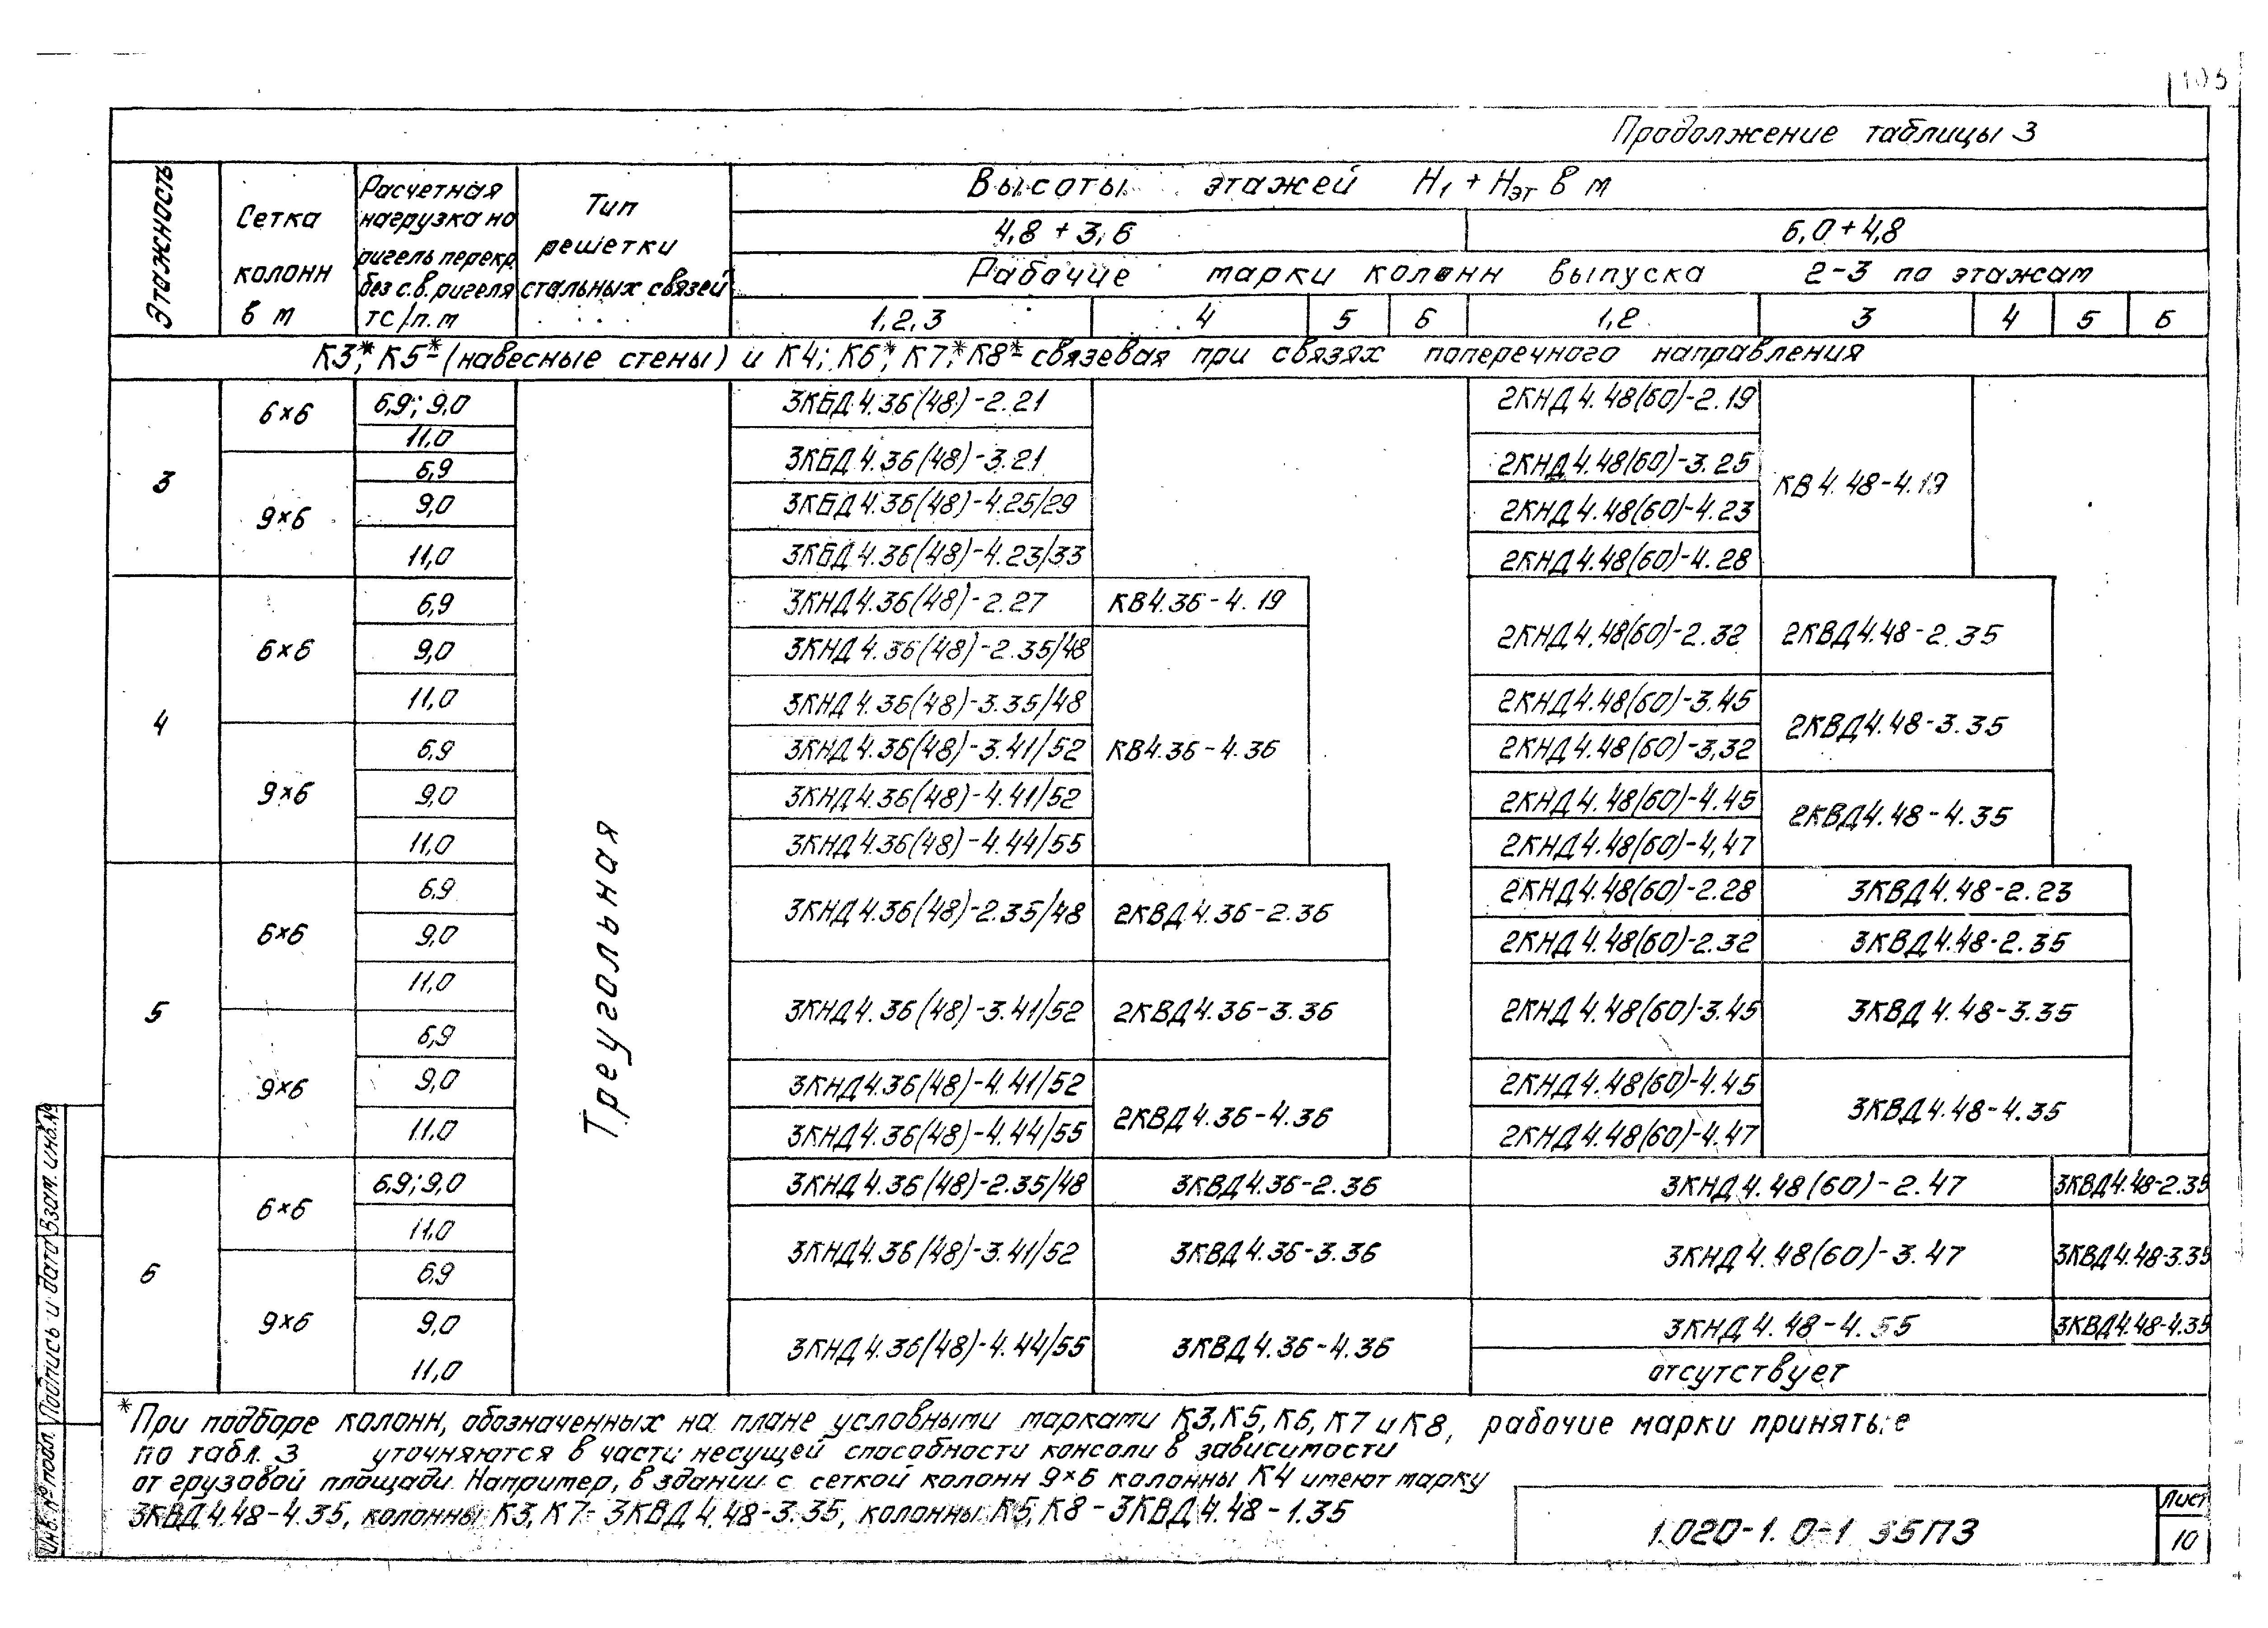 Продолжение таблицы 3
Этажность
Сетка колонн в м
Расчетная нагрузка на ригель перекр. без с.в. ригеля тс/п.м
Тип решетки стальных связей
Высоты этажей Н1 + Нэт в м
4,8 + 3,6 6,0 + 4,8
Рабочие марки колонн выпуска 2-3 по этажам
1,2,3 4 5 6 1,2 3 4 5 6
К3*, К5* (навесные стены) и К4; К6*, К7*, К8* связевая при связях поперечного направления
Треугольная
3
6×6 6,9; 9,0 3КБД4.36(48)-2.21 2КНД4.48(60)-2.19
11,0
3КБД4.36(48)-3.21 2КНД4.48(60)-3.25 КВ4.48-4.19
9×6 6,9
9,0 3КБД4.36(48)-4.25/29 2КНД4.48(60)-4.23
11,0 3КБД4.36(48)-4.23/33 2КНД4.48(60)-4.28
4
6×6 6,9 3КНД4.36(48)-2.27 КВ4.36-4.19
9,0 3КНД4.36(48)-2.35/48 2КНД4.48(60)-2.32 2КВД4.48-2.35
11,0 3КНД4.36(48)-3.35/48 2КНД4.48(60)-3.45
2КВД4.48-3.35
9×6 6,9 3КНД4.36(48)-3.41/52 КВ4.36-4.36 2КНД4.48(60)-3,32
9,0 3КНД4.36(48)-4.41/52 2КНД4.48(60)-4.45 2КВД4.48-4.35
11,0 3КНД4.36(48)-4.44/55 2КНД4.48(60)-4,47
5
6×6 6,9 2КНД4.48(60)-2.28 3КВД4.48-2.23
3КНД4.36(48)-2.35/48 2КВД4.36-2.36
9,0 2КНД4.48(60)-2.32 3КВД4.48-2.35
11,0
3КНД4.36(48)-3.41/52 2КВД4.36-3.36 2КНД4.48(60)-3.45 3КВД4.48-3.35
9×6 6,9
9,0 3КНД4.36(48)-4.41/52 2КНД4.48(60)-4.45
2КВД4.36-4.36 3КВД4.48-4.35
11.0 3КНД4.36(48)-4.44/55 2КНД4.48(60)-4.47
6
6×6 6,9; 9,0 3КНД4.36(48)-2.35/48 3КВД4.36-2.36 3КНД4.48(60)-2.47 3КВД4.48-2.35
11,0
3КНД4.36(48)-3.41/52 3КВД4.36-3.36 3КНД4.48(60)-3.47 3КВД4.48-3.35
9×6 6,9
9,0 3КНД4.48-4.55 3КВД4.48-4.35
3КНД4.36(48)-4.44/55 3КВД4.36-4.36
11,0 отсутствует
*При подборе колонн, обозначенных на плане условными марками К3, К5, К6, К7 и К8, рабочие марки принятые
по табл. 3 уточняются в части несущей способности консоли в зависимости
от грузовой площади. Например, в здании с сеткой колонн 9×6 колонны К4 имеют марку
3КВД4.48-4.35, колонны К3, К7- 3КВД4.48-3.35, колонны К5, К8 - 3КВД4.48-1.35
1.020-1. 0-1 35ПЗ
Лист
10
Инв. № подл. Подпись и дата Взам. инв. №